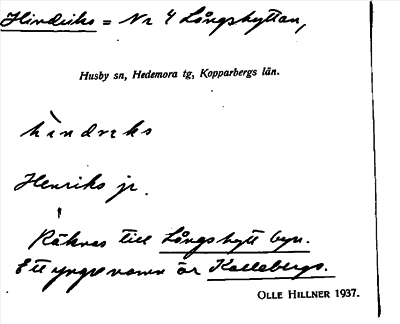 Hindriks = Nr 4 Långshyttan,
Husby sn, Hedemora tg, Kopparbergs län.
hìndrıks
Henriks jr.
Räknas till Långshytt byn.
Ett yngre namn är Kallebergs.
OLLE HILLNER 1937.